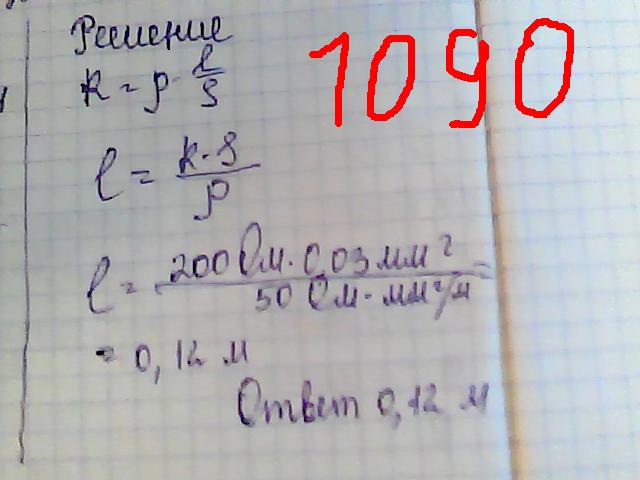 Решение
1090
R = ρ · l/S
l = R · S/ρ
l = 200 Ом · 0,03 мм²/50 Ом · мм²/м =
= 0,12 м
Ответ 0,12 м